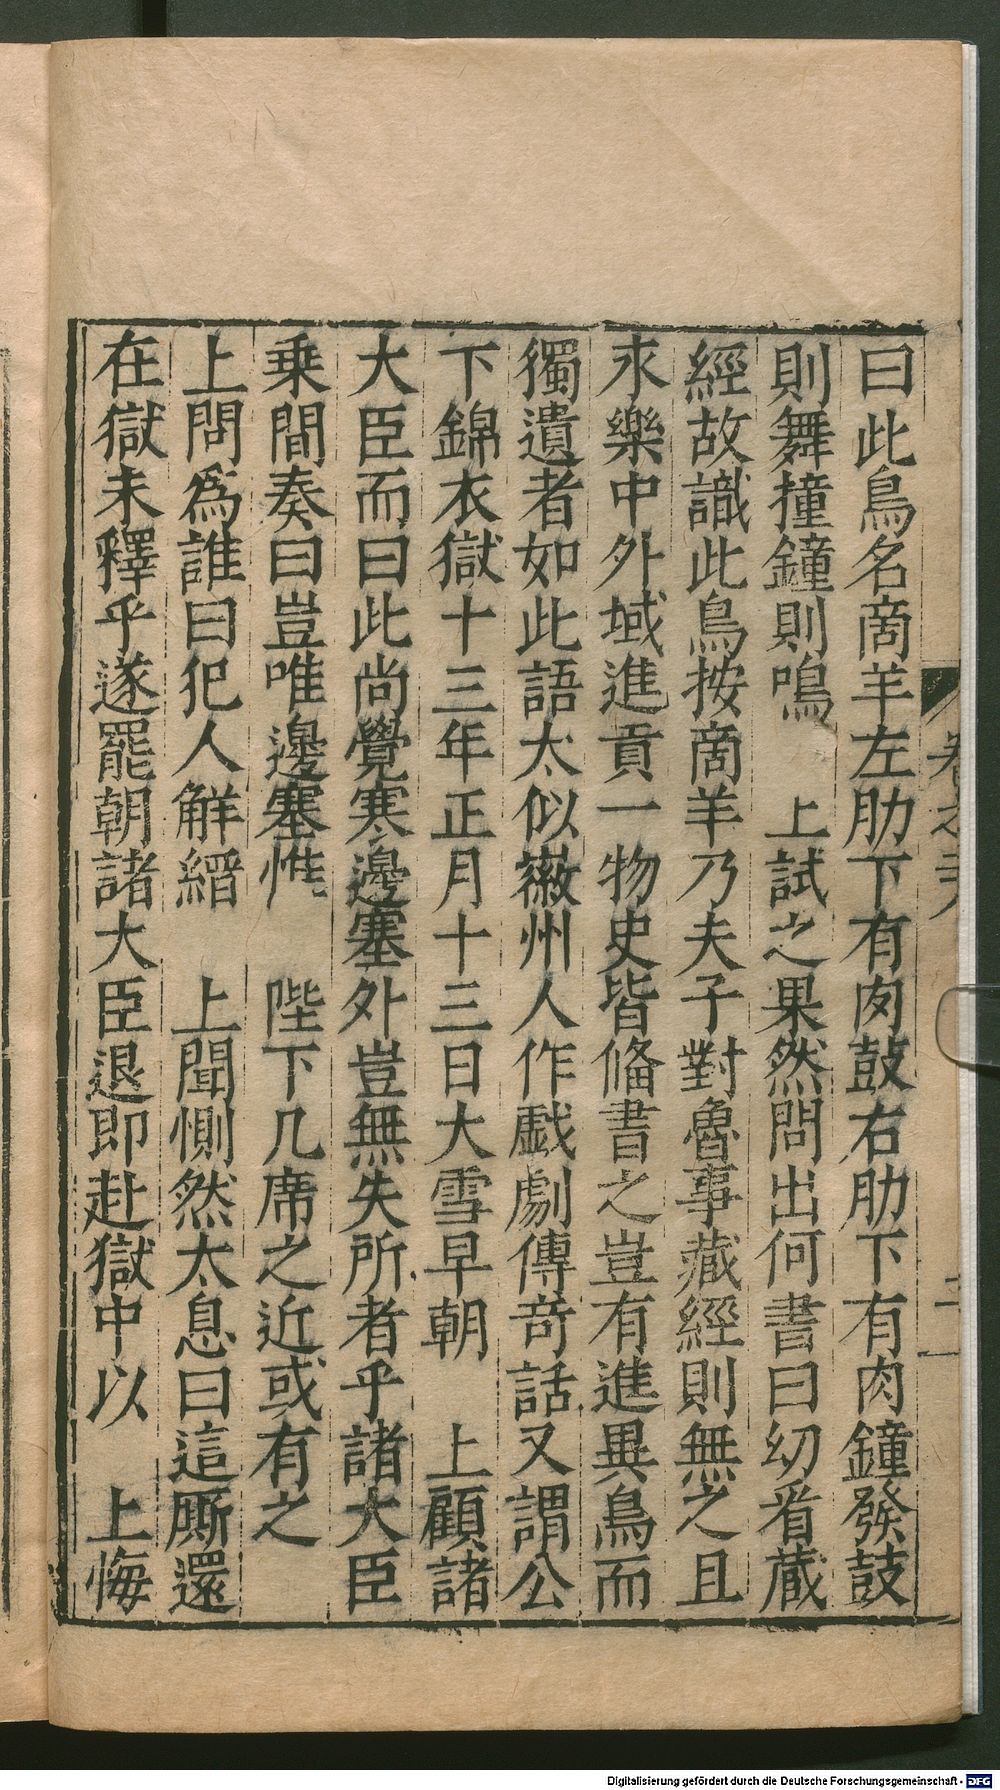 曰此鳥名商羊左肋下有肉鼓右肋下有肉鐘發鼓
則舞撞鐘則鳴　上試之果然問出何書曰幼看藏
經故識此鳥按商羊乃夫子對魯事藏經則無之且
永樂中外域進貢一物史皆俻書之豈有進異鳥而
獨遺者如此語太似徽州人作戯劇傳奇話又謂公
下錦衣獄十三年正月十三日大雪早朝　上顧諸
大臣而曰此尚覺寒邊塞外豈無失所者乎諸大臣
乗間奏曰豈唯邊塞惟　陛下几席之近或有之
上問爲誰曰犯人解縉　上聞惻然太息曰這厮還
在獄未釋乎遂罷朝諸大臣退即赴獄中以　上悔
Digitalisierung gefördert durch die Deutsche Forschungsgemeinschaft - DFG